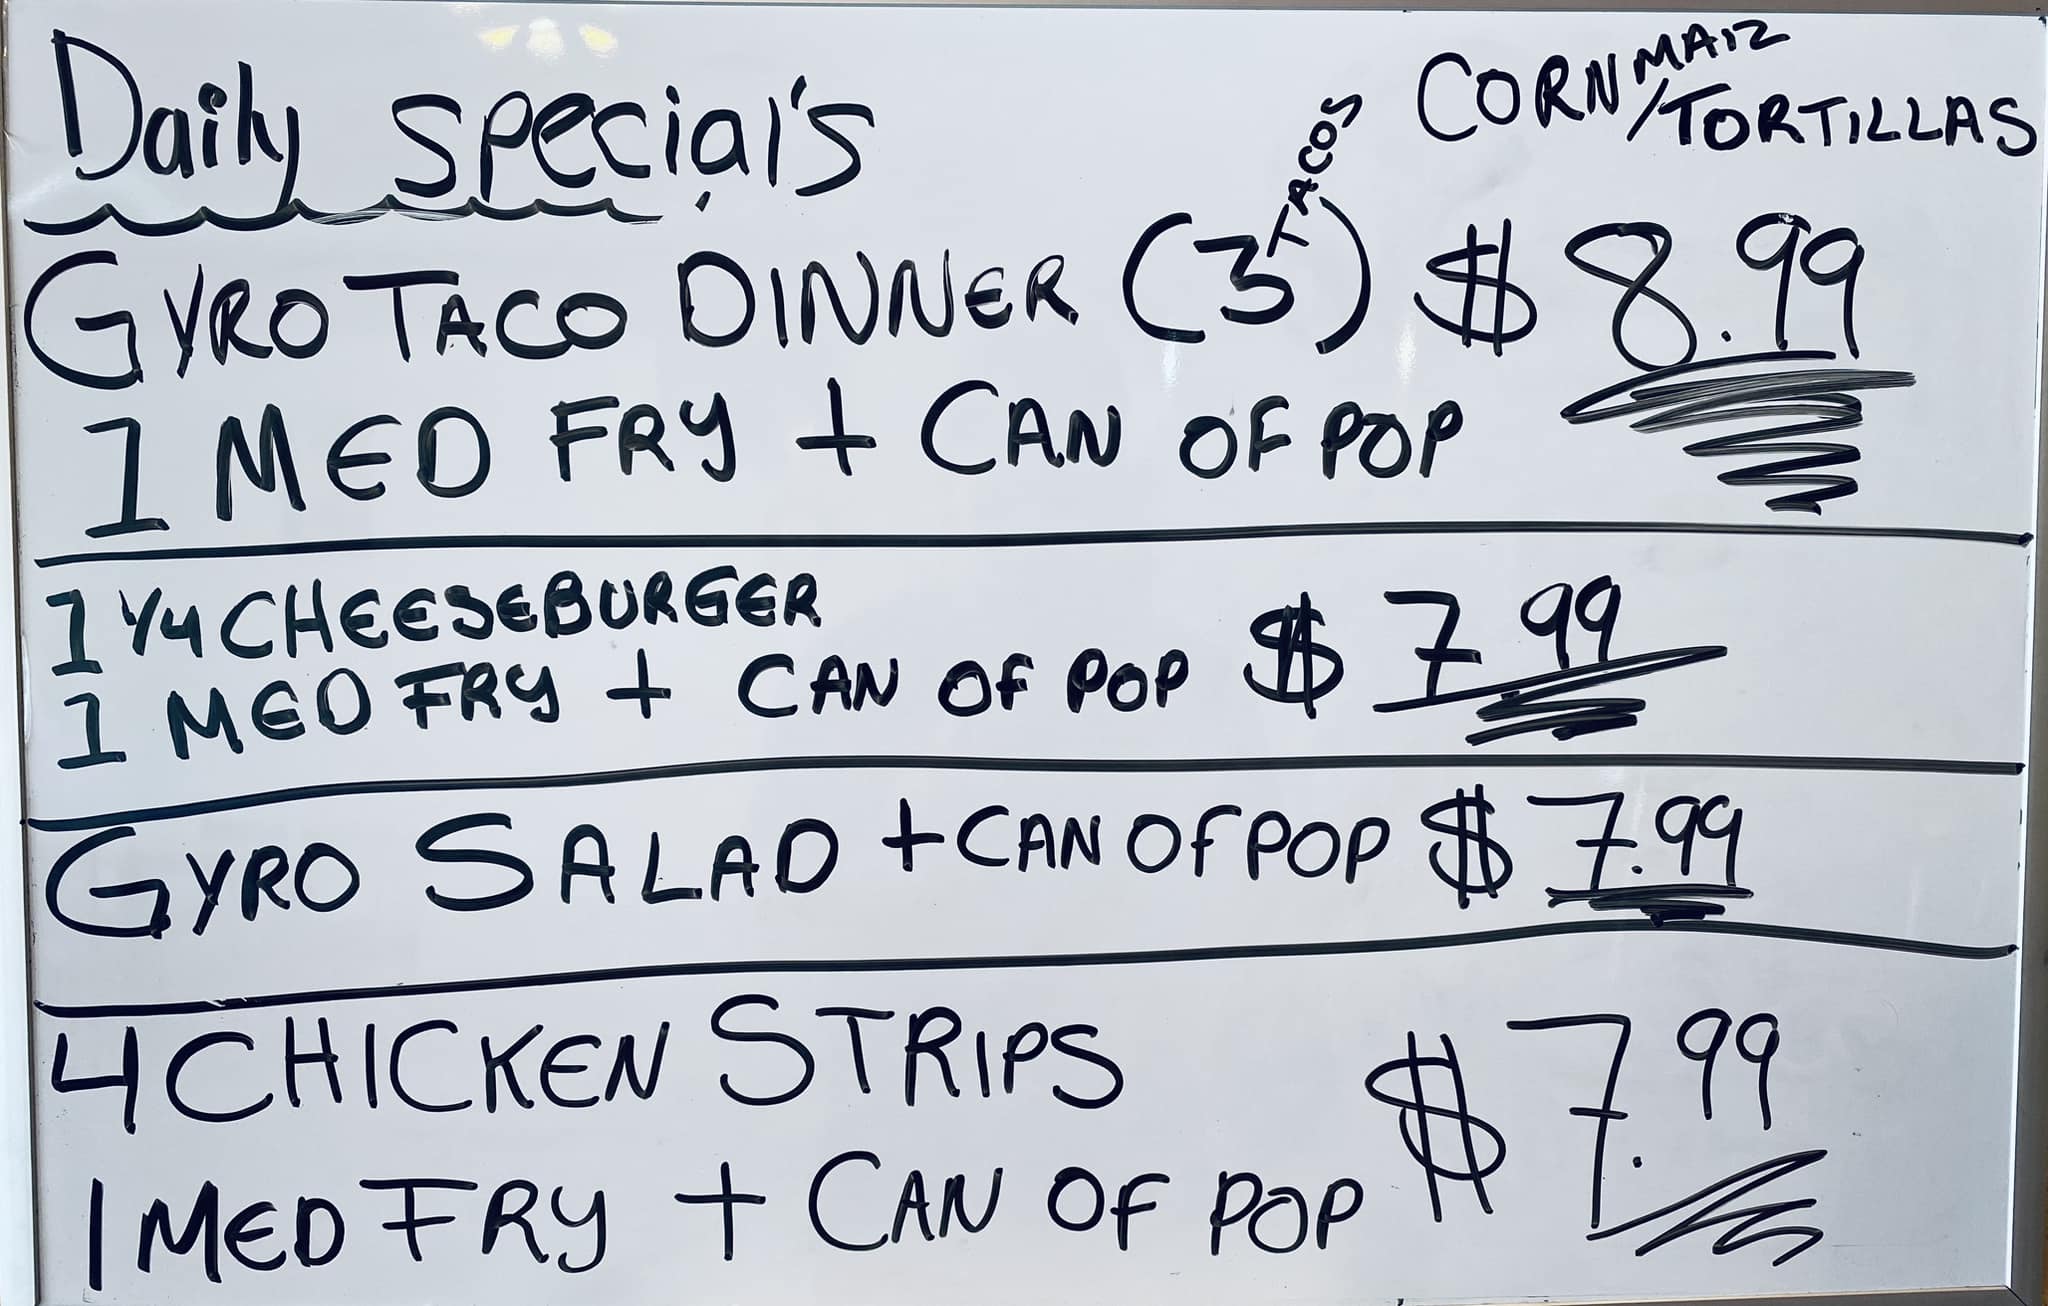 Daily special's
CORN/MAIZ TORTILLAS
GYRO TACO DINNER (3 TACOS) $8.99
1 MED FRY + CAN OF POP
1 1/4 CHEESEBURGER
1 MED FRY + CAN OF POP $7.99
GYRO SALAD + CAN OF POP $7.99
4 CHICKEN STRIPS $7.99
1 MED FRY + CAN OF POP